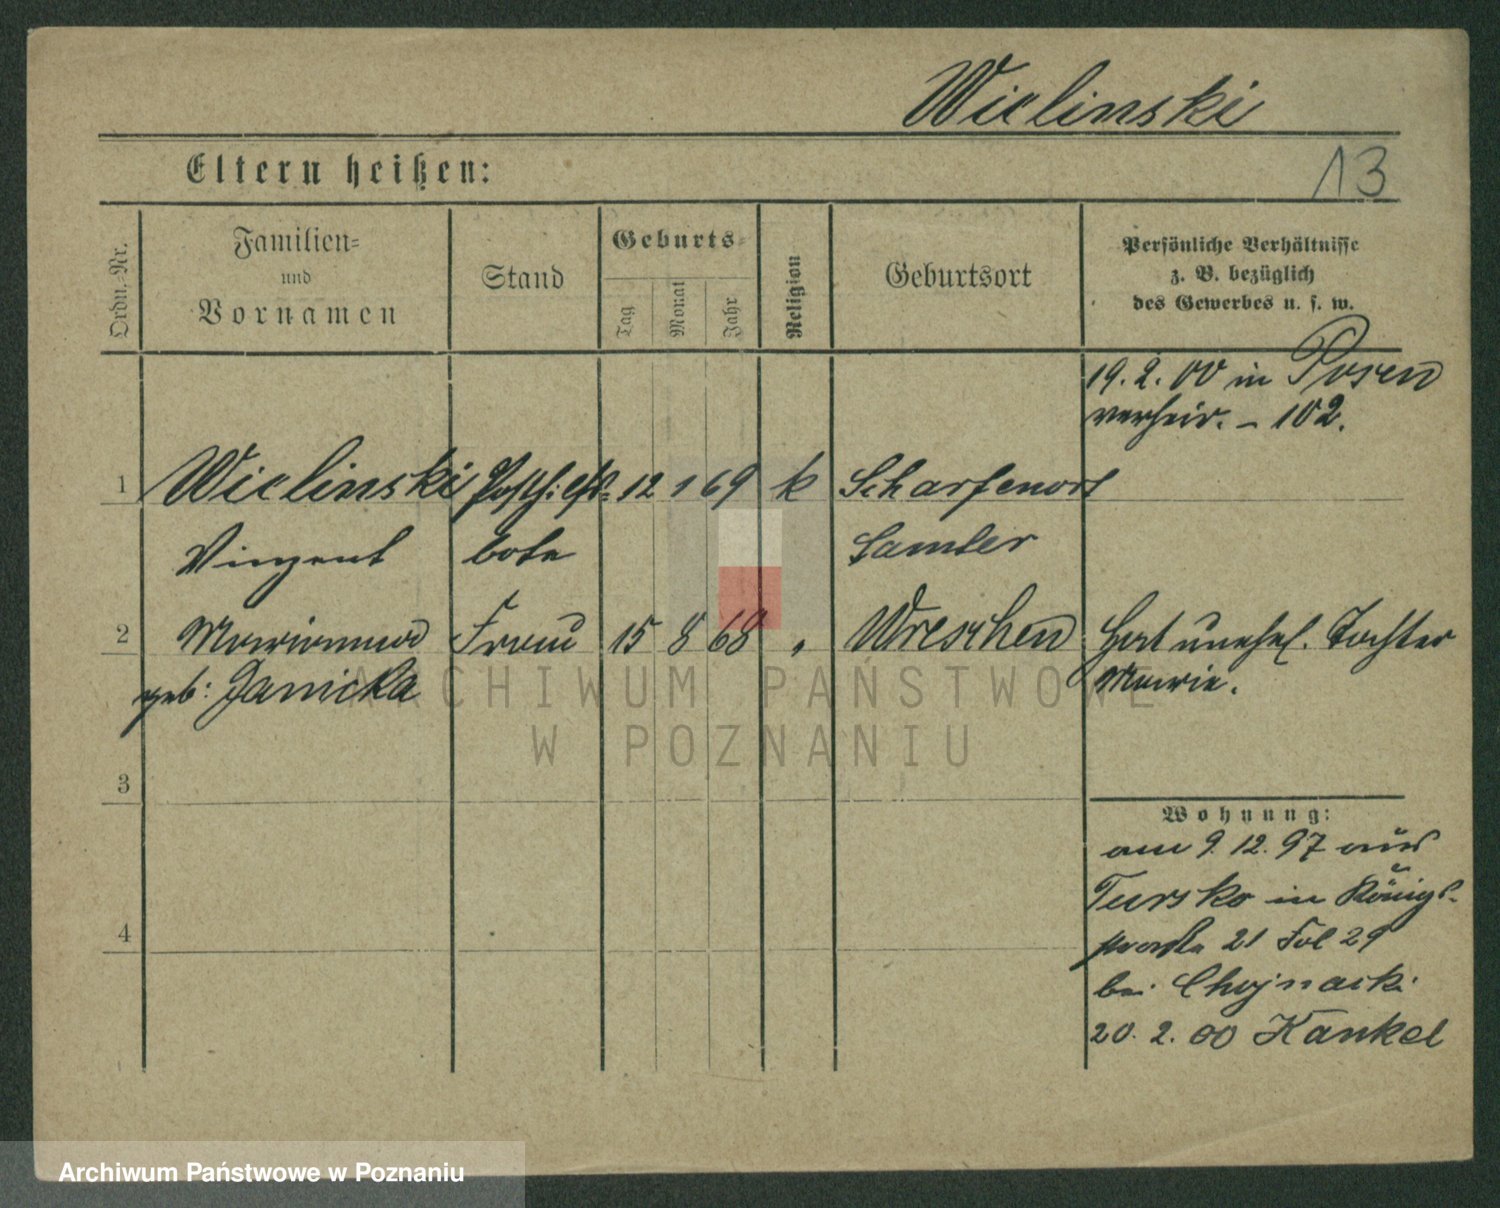 Wielinski
Eltern heißen:
13
Ordn.-Nr.
Familien-
und
Vornamen
Stand
Geburts-
Tag
Monat
Jahr
Religion
Geburtsort
Persönliche Verhältnisse
z. B. bezüglich
des Gewerbes u. s. w.
19. 2. 00 in Posen
verheir. – 102.
1 Wielinski Posthilfs- 12 1 69 k Scharfenort
Vinzent bote Samter
2 Marianna Frau 15 8 68 " Wreschen Hat unehel. Tochter
geb: Janicka Marie.
3
Wohnung:
am 9. 12. 97 aus
Tursko in Königs-
4
21 Fol 29
bei Chojnacki
20. 2. 00 Kankel
ARCHIWUM PAŃSTWOWE
W POZNANIU
Archiwum Państwowe w Poznaniu